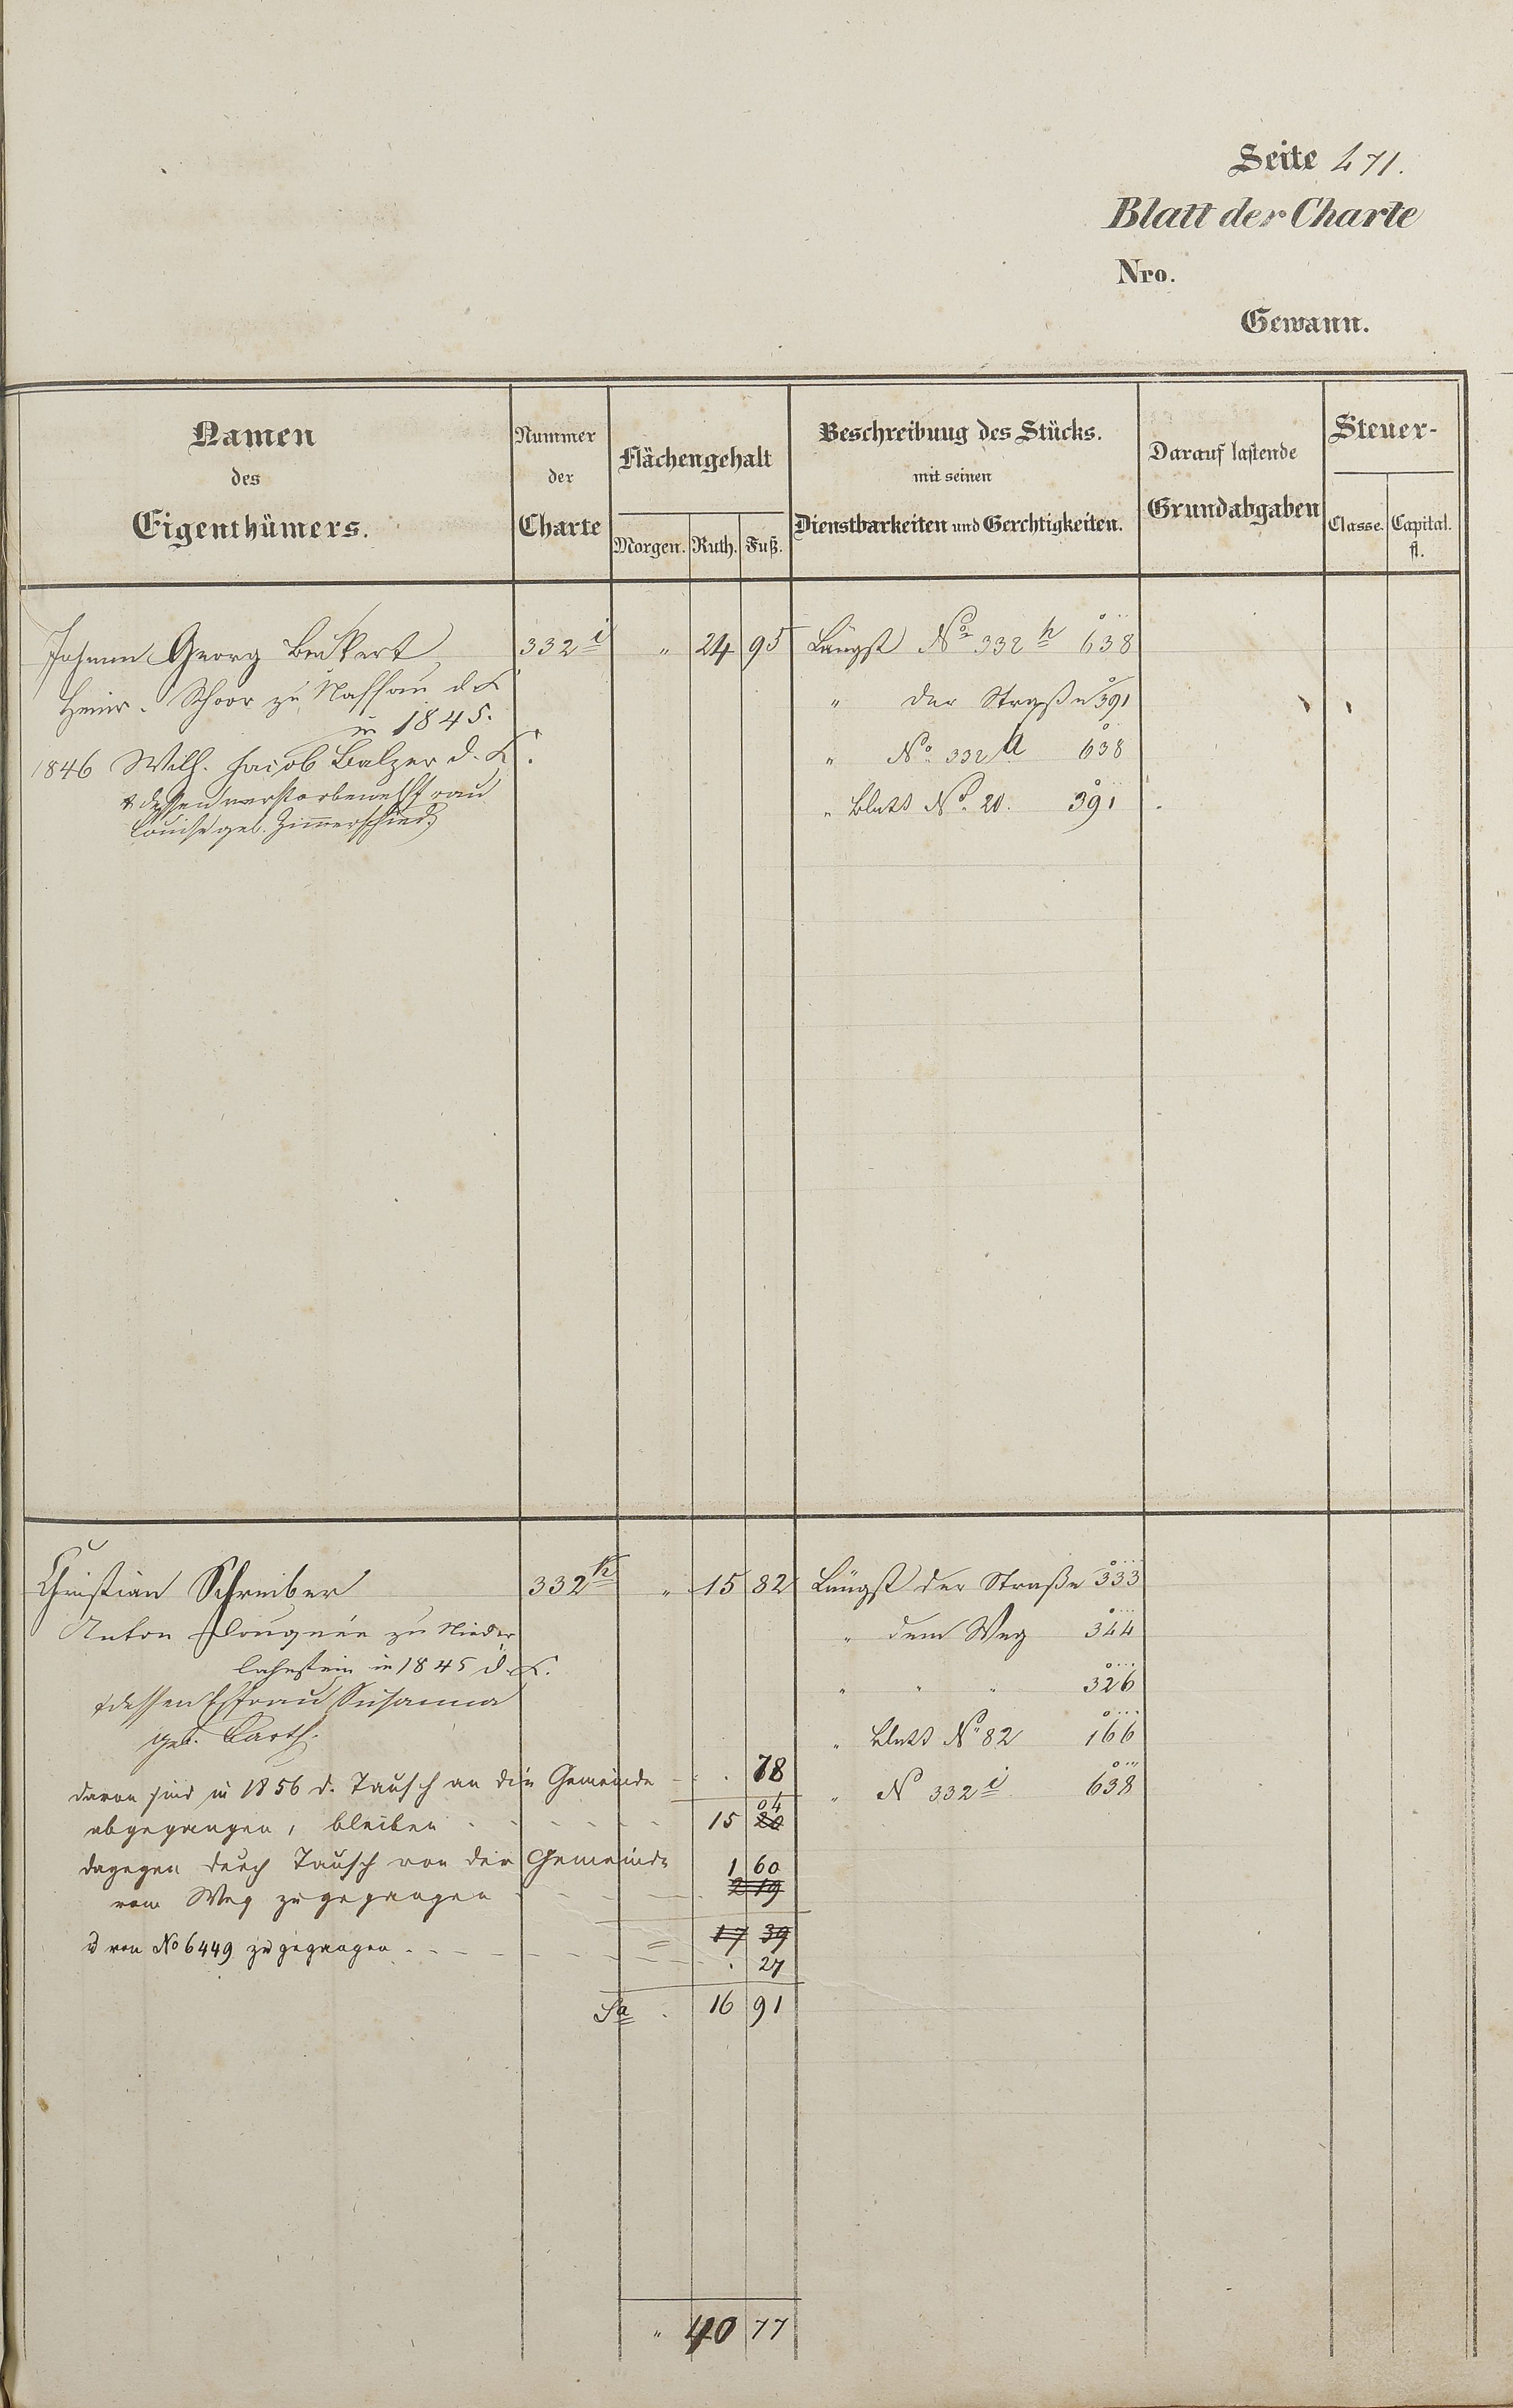 Seite 471.
Blatt der Charte
Nro.
Gewann.
Namen des Eigenthümers.
Nummer der Charte
Flächengehalt
Morgen. Ruth. Fuß.
Beschreibung des Stücks. mit seinen Dienstbarkeiten und Gerchtigkeiten.
Darauf lastende Grundabgaben
Steuer-
Classe. Capital. fl.
Johann Georg Beckert 332 i " 24 95 Längst No 332 h 638
Heinr. Schoor zu Nassau d. K. " der Straße 391
in 1845.
1846 Wilh. Jacob Balzer d. K. " No 332 a 638
& dessen verstorbene Ehfrau " Blatt No. 20. 391
Louise geb. Zimmerschied
Christian Schreiber 332 k " 15 82 Längst der Straße 333
Anton zu Nieder " dem Weg 344
lahnstein in 1845 d. K. " " " 326
& dessen Ehfrau Susanna
geb. Barth. " Blatt No 82 166
davon sind in 1856 d. Tausch an die Gemeinde - . 78 " N 332 i 638
abgegangen, bleiben 15 20 04
dagegen durch Tausch von der Gemeinde 1 60
vom Weg zugegangen 2 19
17 39
d von No 6449 zugegangen . 27
Sa . 16 91
" 40 77